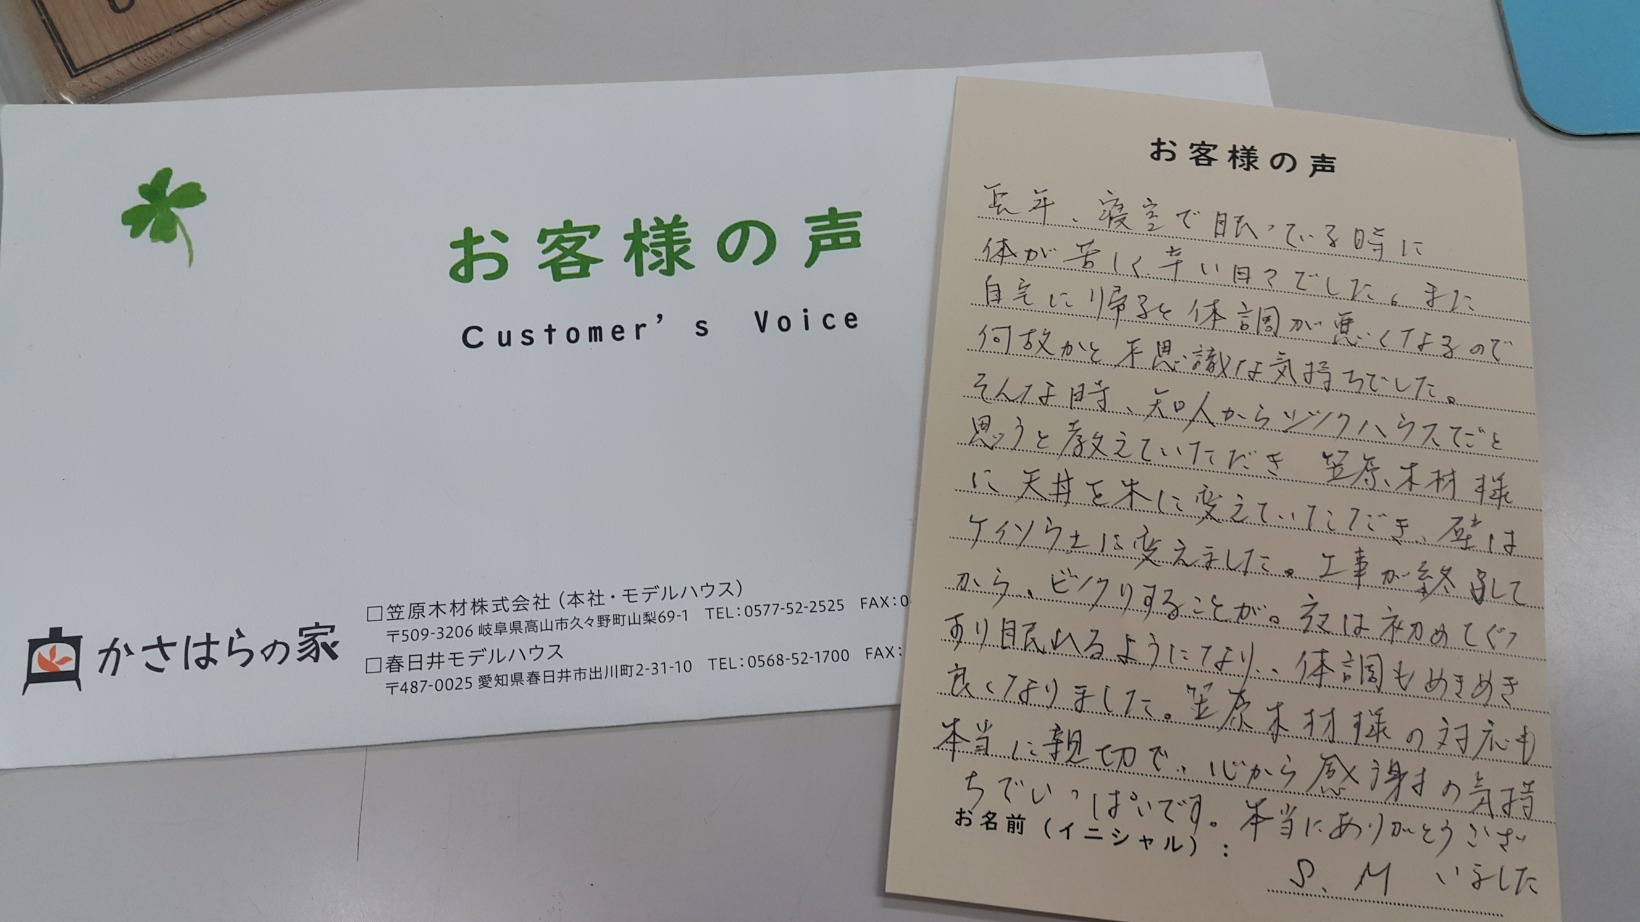 お客様の声
Customer's Voice
かさはらの家
□笠原木材株式会社（本社・モデルハウス）
〒509-3206 岐阜県高山市久々野町山梨69-1 TEL：0577-52-2525 FAX：0
□春日井モデルハウス
〒487-0025 愛知県春日井市出川町2-31-10 TEL：0568-52-1700 FAX：
お客様の声
長年、寝室で眠っている時に
体が苦しく辛い日々でした。また
自宅に帰ると体調が悪くなるので
何故かと不思議な気持ちでした。
そんな時、知人からシックハウスでごと
思うと教えていただき 笠原木材様
に天井を木に変えていただき、壁は
ケイソウ土に変えました。工事が終了して
から、ビックリすることが。夜は初めてぐっ
すり眠れるようになり、体調もめきめき
良くなりました。笠原木材様の対応も
本当に親切で、心から感謝の気持
ちでいっぱいです。本当にありがとうござ
いました
お名前（イニシャル）：
S、M